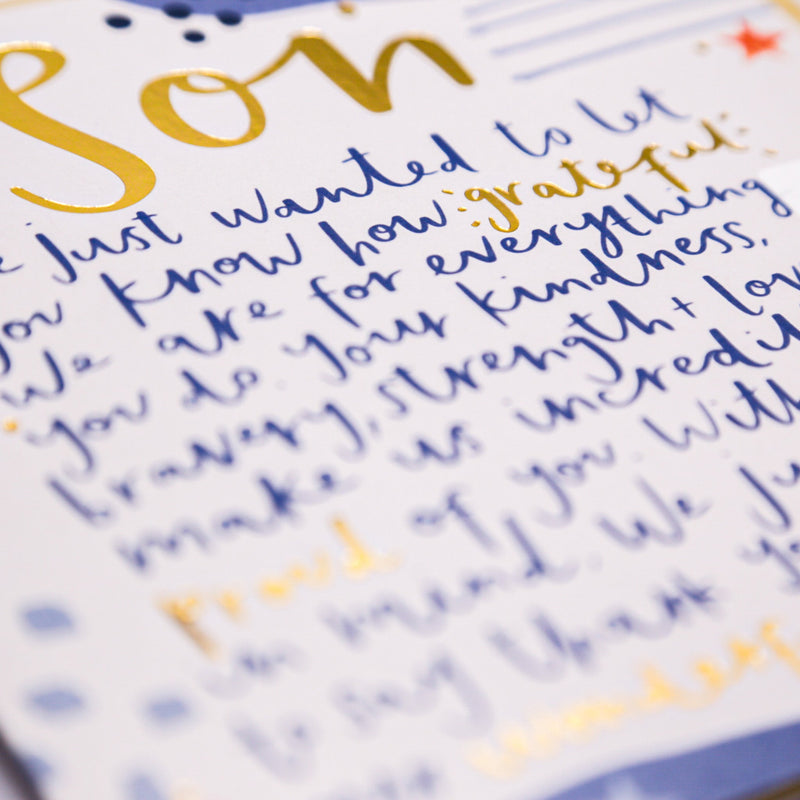 Son
just wanted to let
you know how grateful
We are for everything
you do. Your kindness,
bravery, strength + love
make us incredibly
proud of you. With
in mind. We just
to say thank you
wonderful